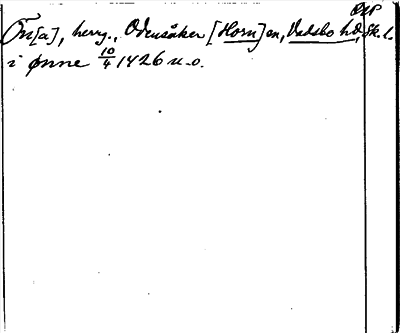 DMP
Ön[a], herrg., Odensåker [Horn] sn, Vadsbo hd, Sk. l.
i ønne 10/4 1426 u.o.